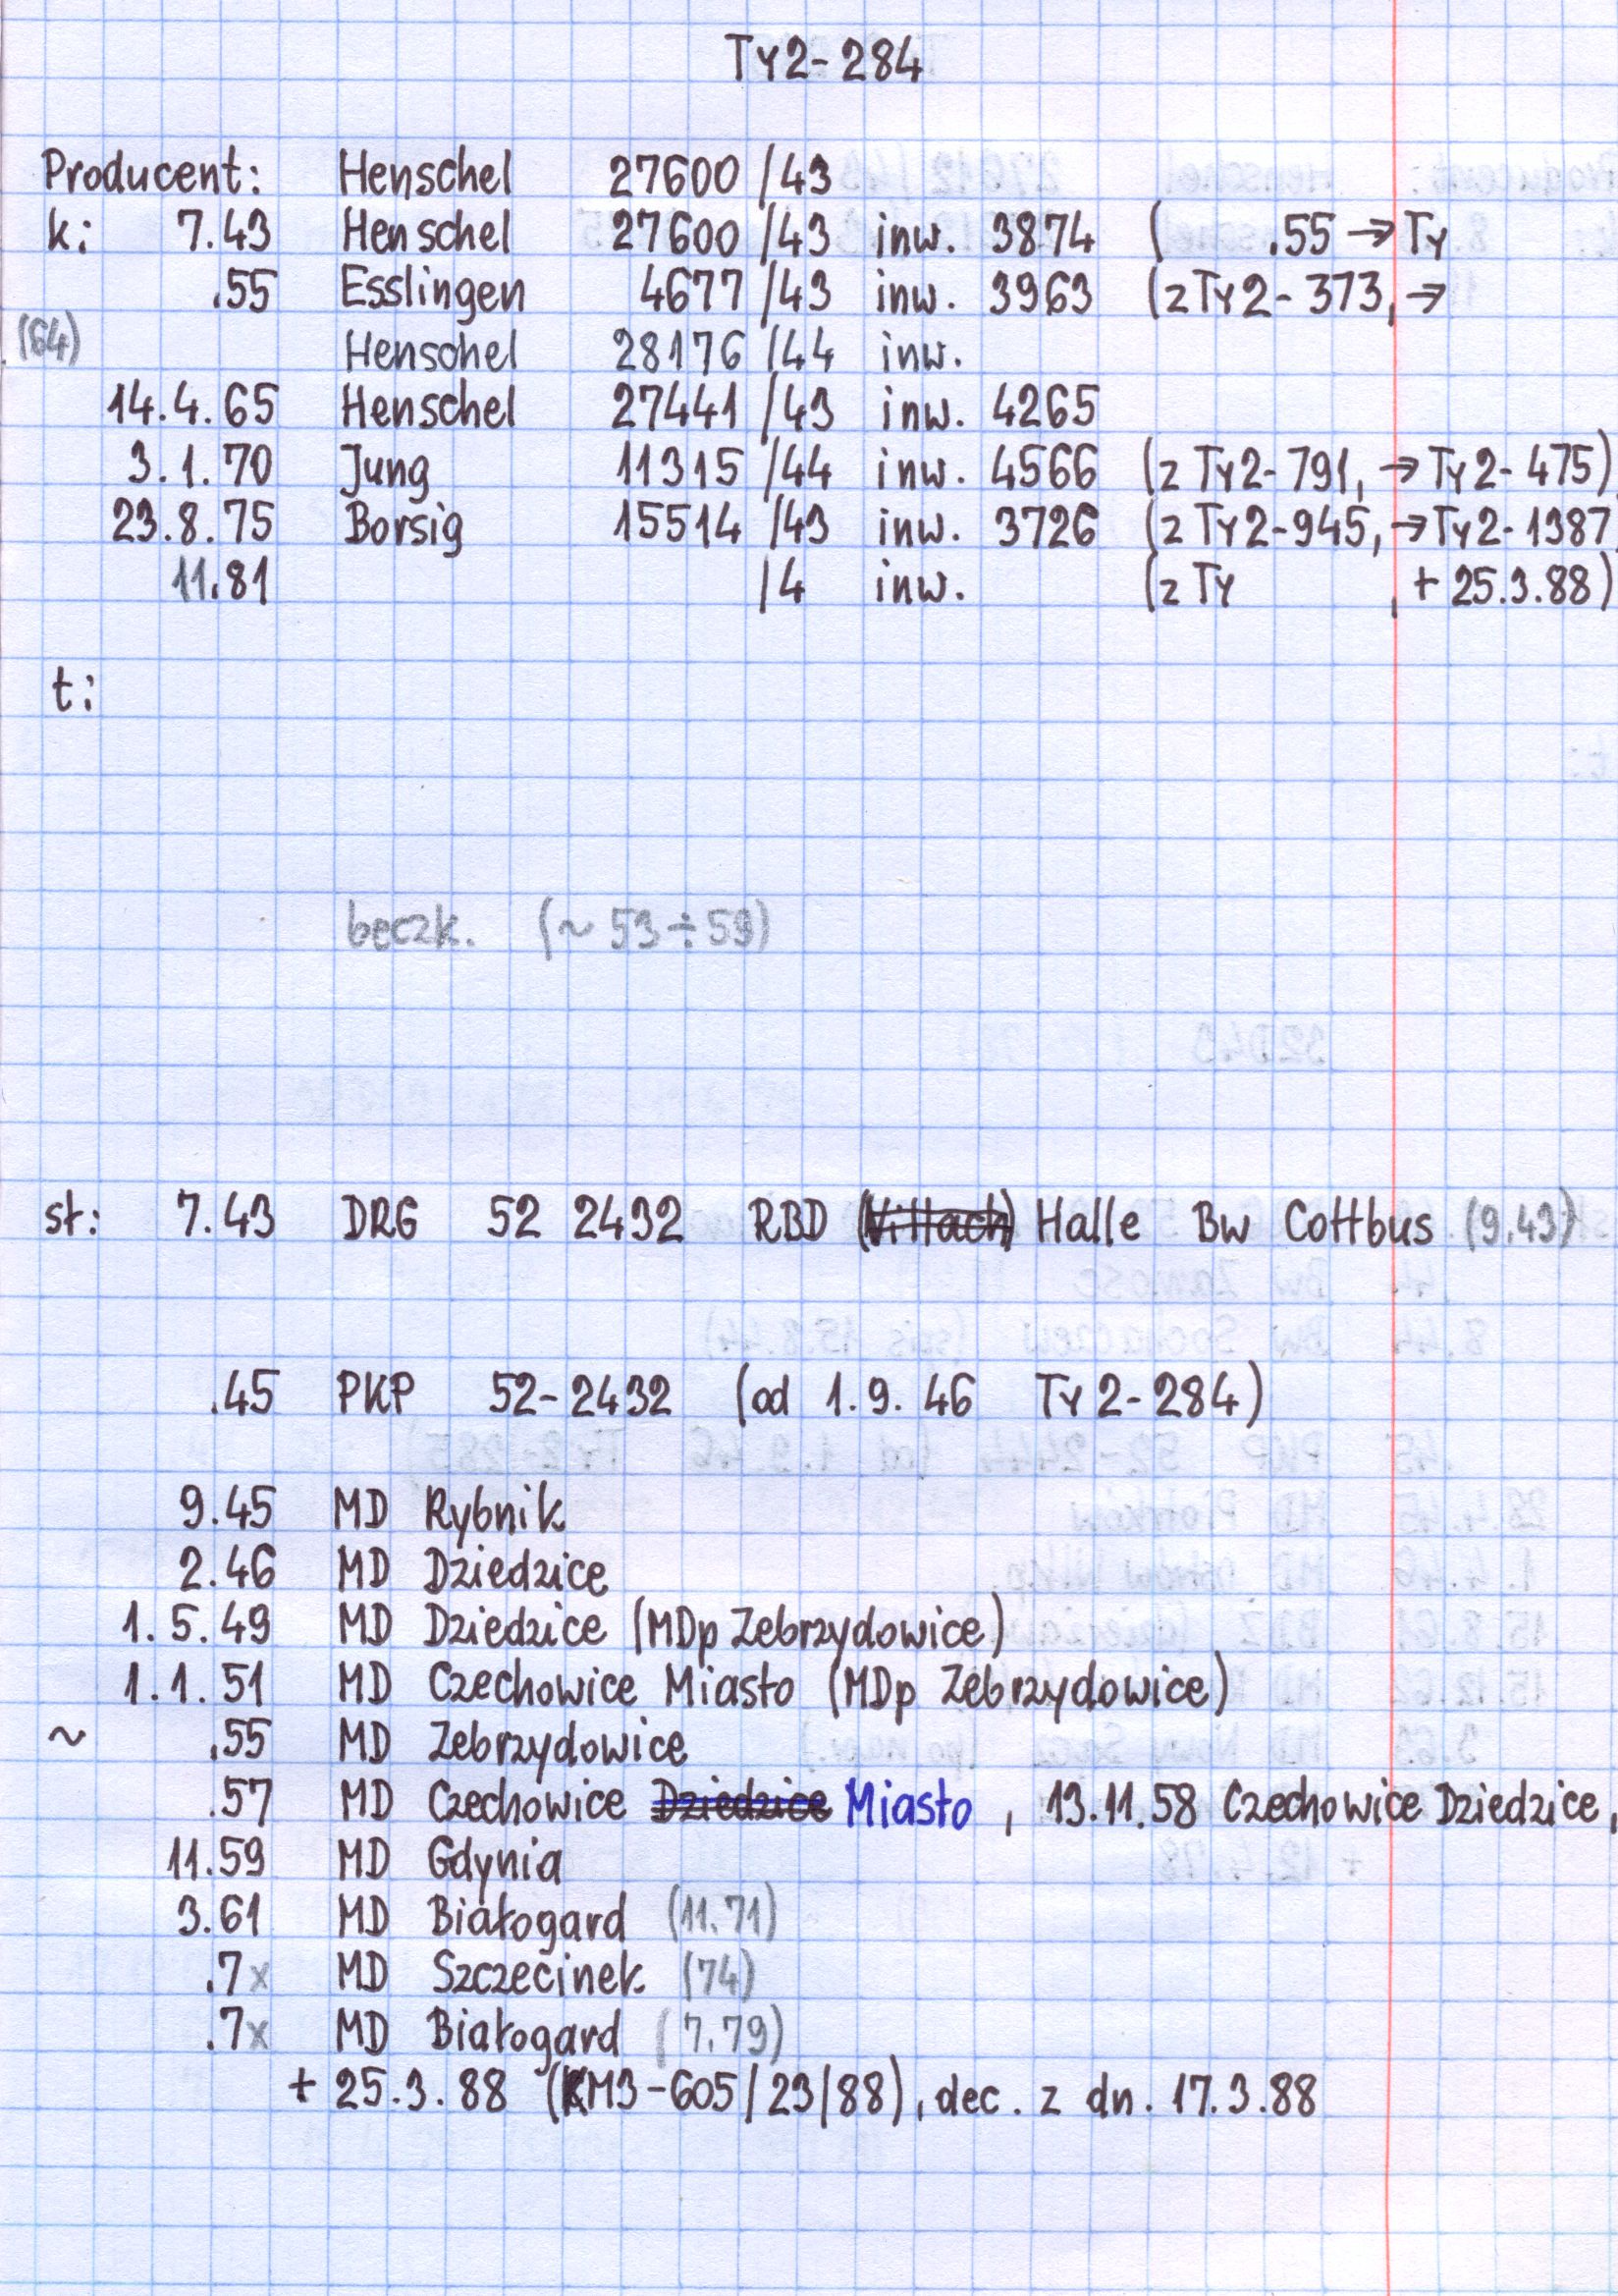 Ty2-284
Producent: Henschel 27600 /43
k: 7.43 Henschel 27600 /43 inw. 3874 ( .55 → Ty
.55 Esslingen 4677 /43 inw. 3963 (z Ty2-373, →
(64) Henschel 28176 /44 inw.
14.4.65 Henschel 27441 /43 inw. 4265
3.1.70 Jung 11315 /44 inw. 4566 (z Ty2-791, → Ty2-475)
23.8.75 Borsig 15514 /43 inw. 3726 (z Ty2-945, → Ty2-1387
11.81 /4 inw. (z Ty , + 25.3.88)
t:
beczk. (~ 53 ÷ 59)
sł: 7.43 DRG 52 2432 RBD (Villach) Halle Bw Cottbus (9.43)
.45 PKP 52-2432 (od 1.9.46 Ty2-284)
9.45 MD Rybnik
2.46 MD Dziedzice
1.5.49 MD Dziedzice (MDp Zebrzydowice)
1.1.51 MD Czechowice Miasto (MDp Zebrzydowice)
~ .55 MD Zebrzydowice
.57 MD Czechowice Dziedzice Miasto , 13.11.58 Czechowice Dziedzice,
11.59 MD Gdynia
3.61 MD Białogard (11.71)
.7x MD Szczecinek (74)
.7x MD Białogard (7.79)
+ 25.3.88 (KM3-605/23/88), dec. z dn. 17.3.88